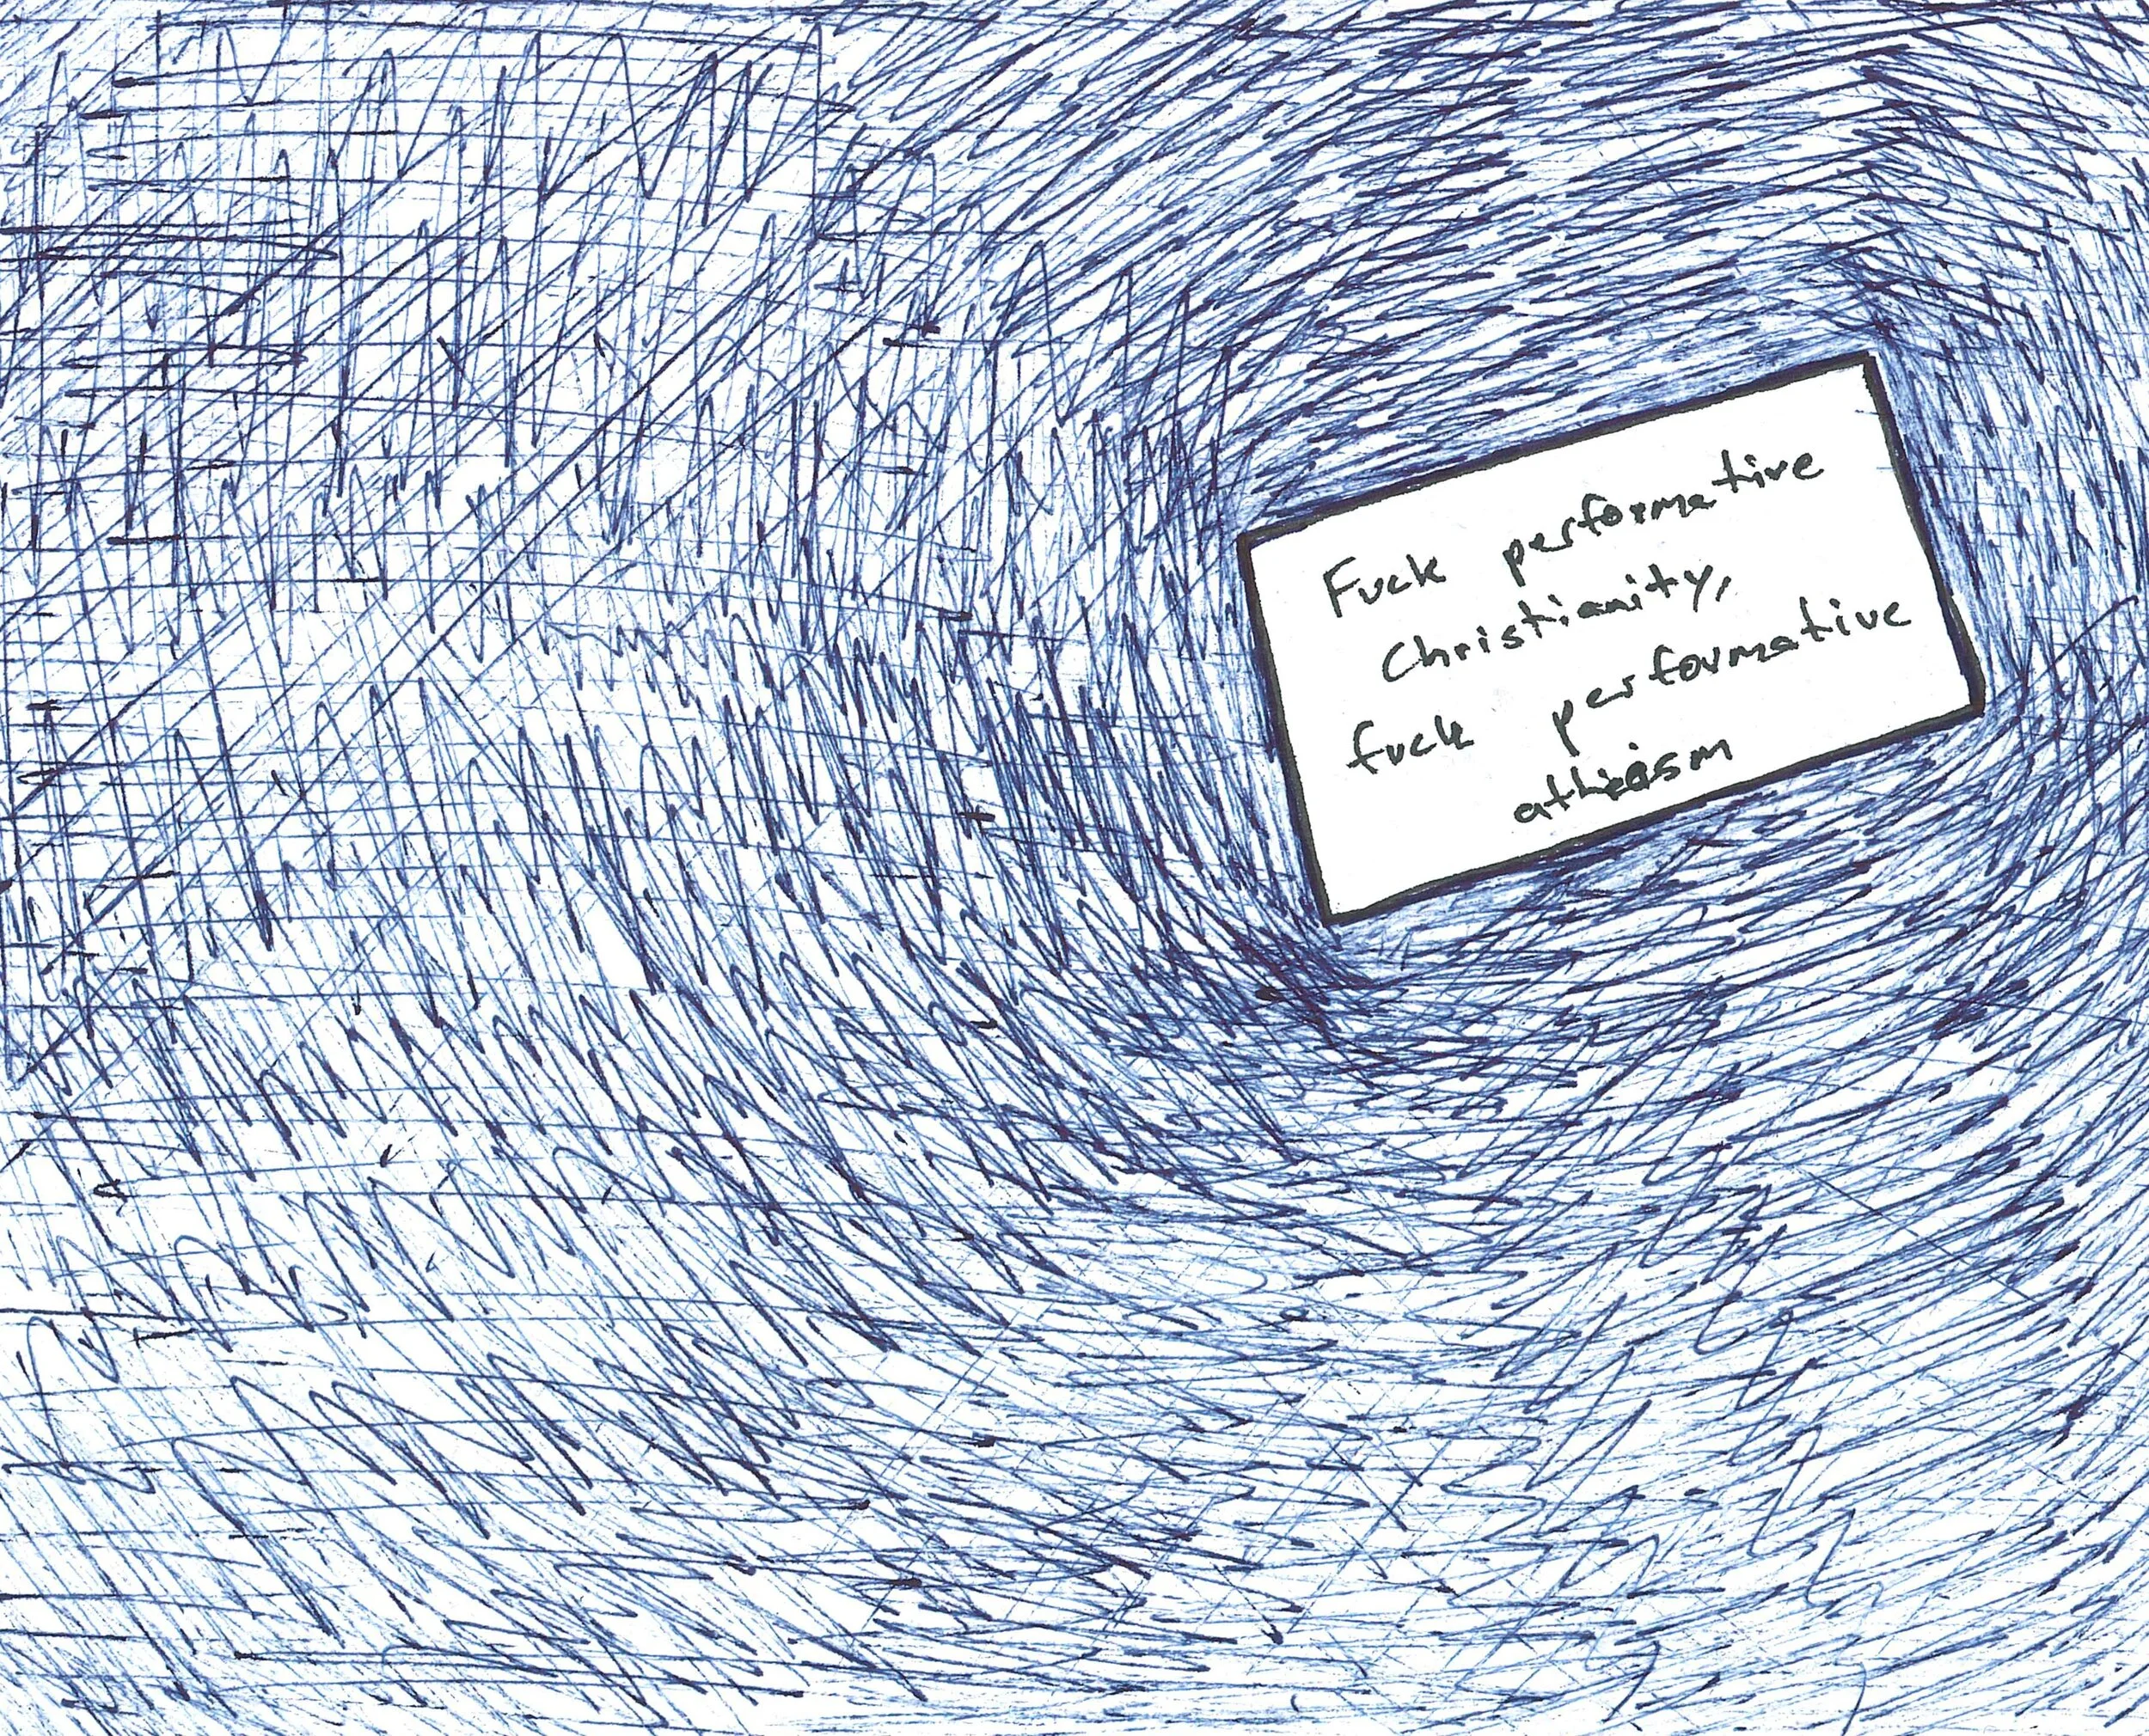 Fuck performative
Christianity,
fuck performative
atheism